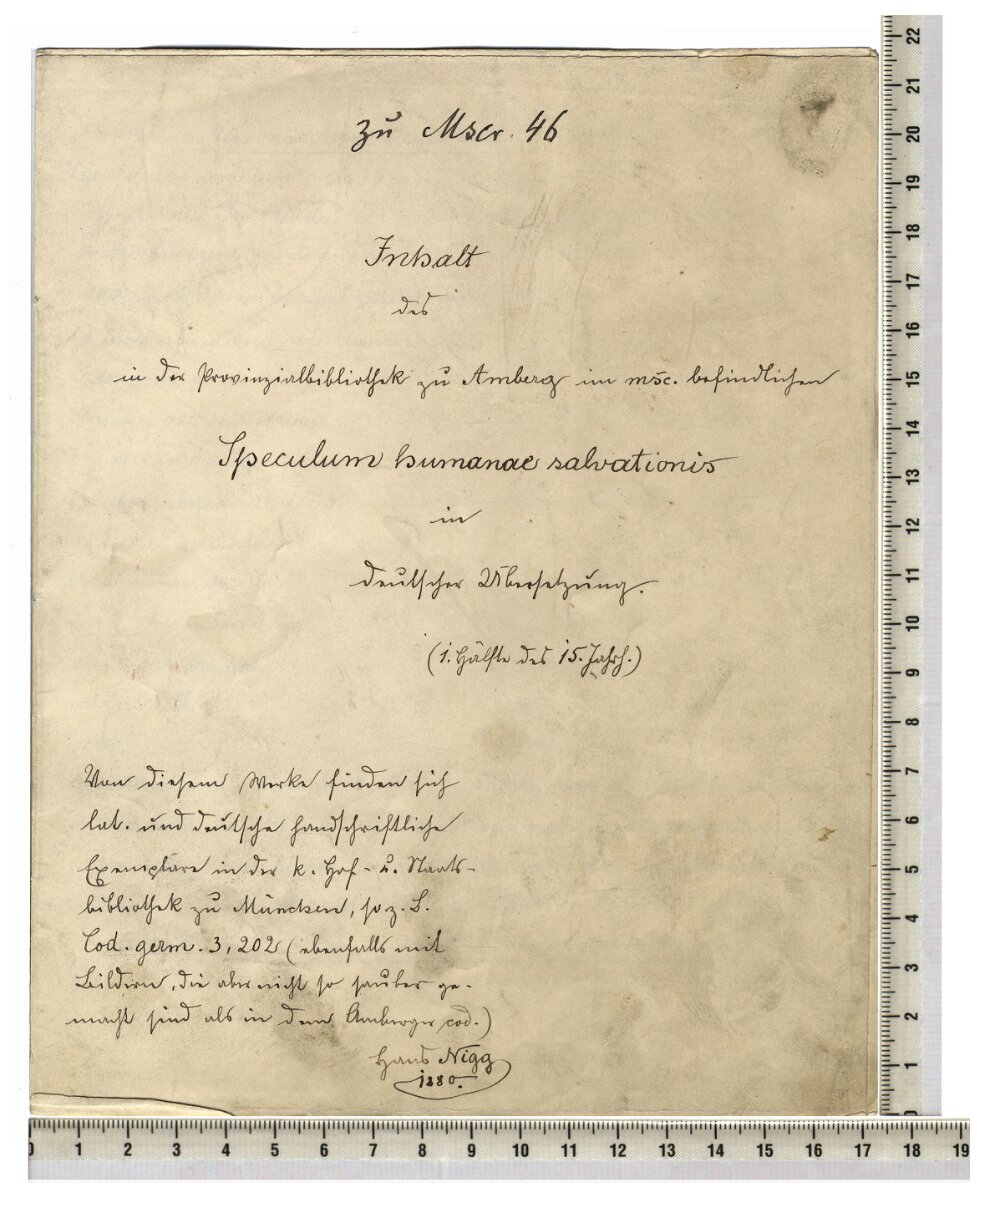 zu Mscr. 46
Inhalt
des
in der Provinzialbibliothek zu Amberg im msc. befindlichen
Speculum humanae salvationis
in
deutscher Übersetzung.
(1. Hälfte des 15. Jahrh.)
Von diesem Werke finden sich
lat. und deutsche handschriftliche
Exemplare in der k. Hof- u. Staats-
bibliothek zu München, so z. B.
Cod. germ. 3, 202 (ebenfalls mit
Bildern, die aber nicht so sauber ge-
macht sind als in dem Amberger cod.)
Hans Nigg
1880.
22
21
20
19
18
17
16
15
14
13
12
11
10
9
8
7
6
5
4
3
2
1
0
0 1 2 3 4 5 6 7 8 9 10 11 12 13 14 15 16 17 18 19